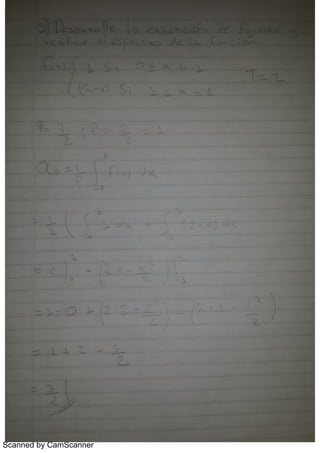 3) Desarrolle la expansión de fourier y
realice el espectro de la función
f(x) { 1 si 0 ≤ x ≤ 1
(2-x) si 1 ≤ x ≤ 2
T = 2
P = T/2 ; P = 2/2 = 1
a₀ = 1/P ∫ f(x) dx
= 1/1 ( ∫ 1 dx + ∫ (2-x) dx
= x | + (2x - x²/2) |
= 1 - 0 + (2·2 - 2²/2) - (2·1 - 1²/2)
= 1 + 2 - 3/2
= 3/2
Scanned by CamScanner